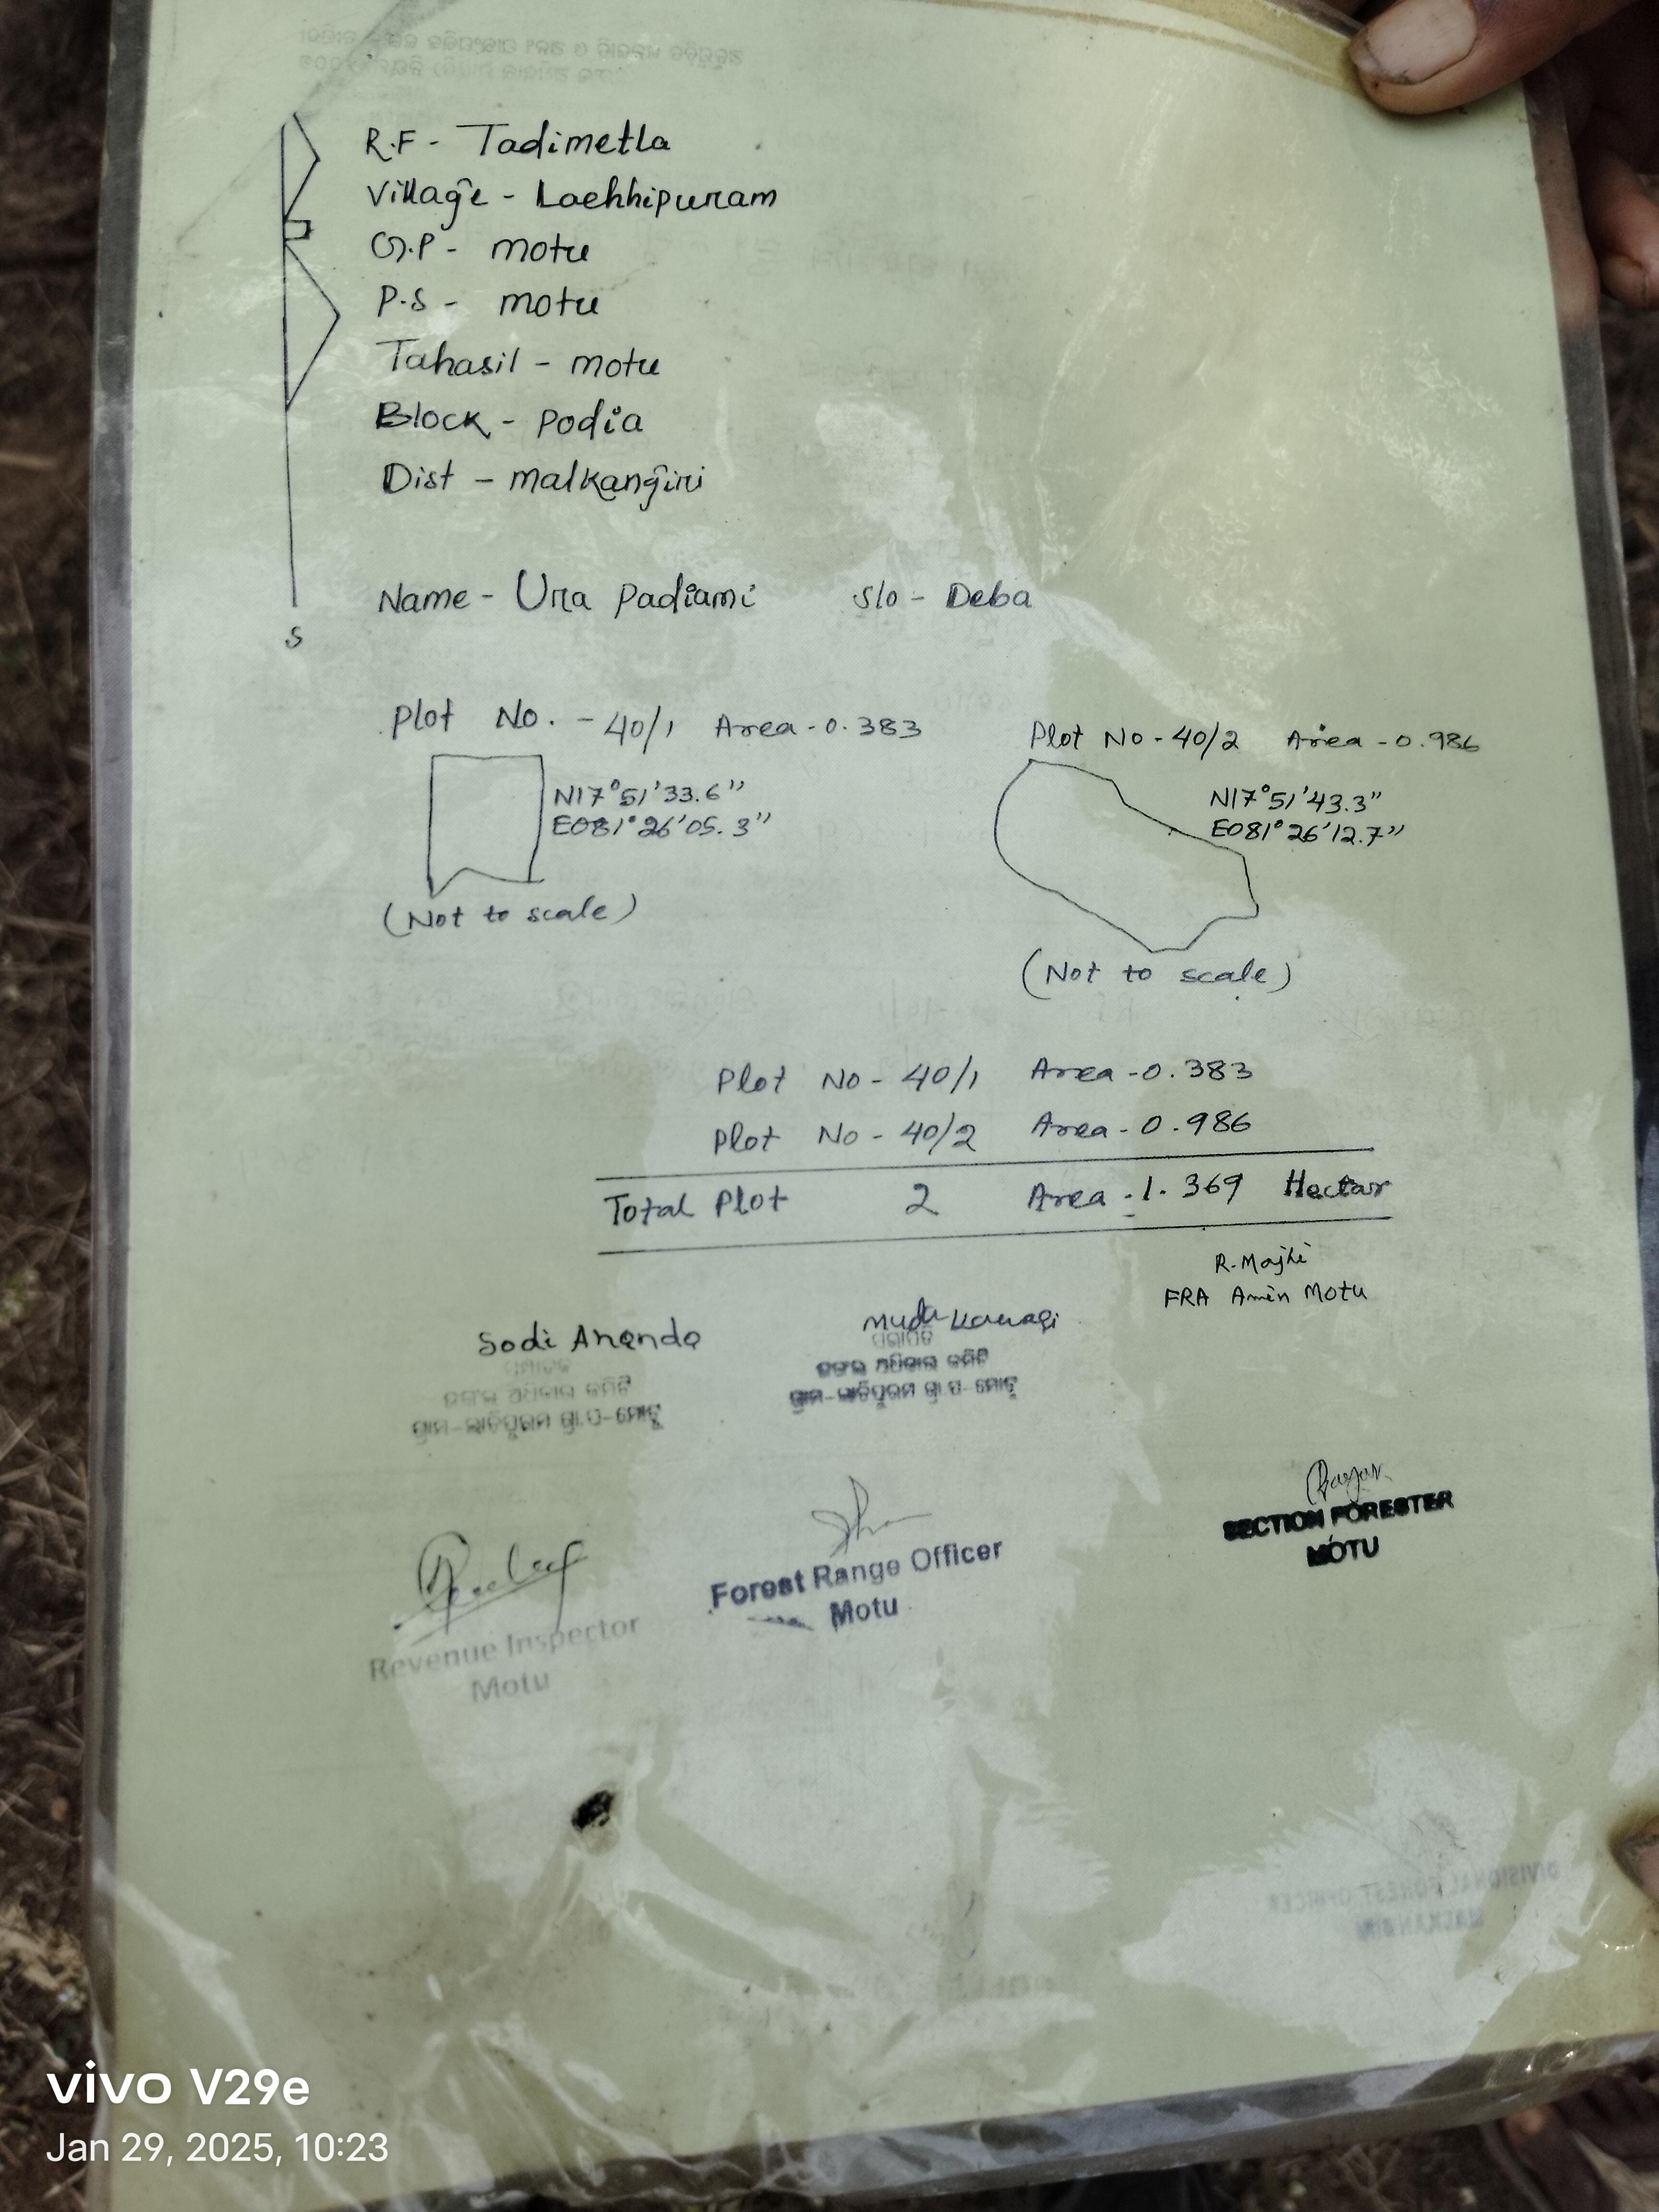 R.F - Tadimetla
Village - Lachhipuram
G.P - motu
P.S - motu
Tahasil - motu
Block - Podia
Dist - malkangiri
Name - Ura Padiami S/o - Deba
S
Plot No. - 40/1 Area - 0.383
Plot No - 40/2 Area - 0.986
N17°51'33.6"
E081°26'05.3"
N17°51'43.3"
E081°26'12.7"
(Not to scale)
(Not to scale)
Plot No - 40/1 Area - 0.383
Plot No - 40/2 Area - 0.986
Total Plot 2 Area - 1.369 Hectar
R. Majhi
FRA Amin Motu
Sodi Ananda
Muda
ଜଙ୍ଗଲ ଅଧିକାର କମିଟି
ଗ୍ରାମ-ଲାଚିପୁରମ ଗ୍ରା.ପ-ମୋଟୁ
ସଭାପତି
ଜଙ୍ଗଲ ଅଧିକାର କମିଟି
ଗ୍ରାମ-ଲାଚିପୁରମ ଗ୍ରା.ପ-ମୋଟୁ
SECTION FORESTER
MOTU
Forest Range Officer
Motu
Revenue Inspector
Motu
DIVISIONAL FOREST OFFICER
MALKANGIRI
vivo V29e
Jan 29, 2025, 10:23